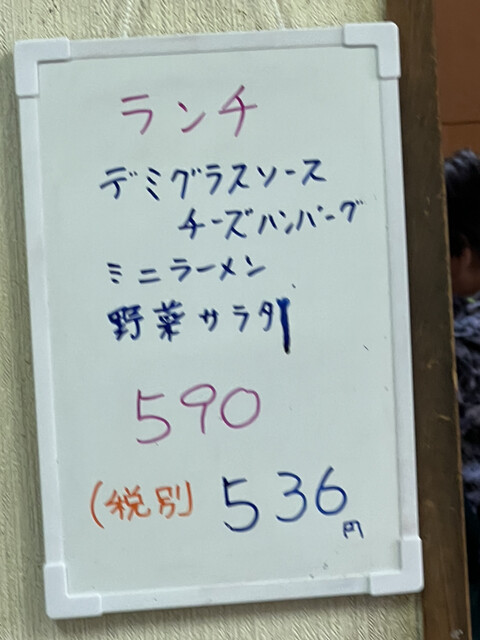 ランチ
デミグラスソース
チーズハンバーグ
ミニラーメン
野菜サラダ
590
(税別) 536円